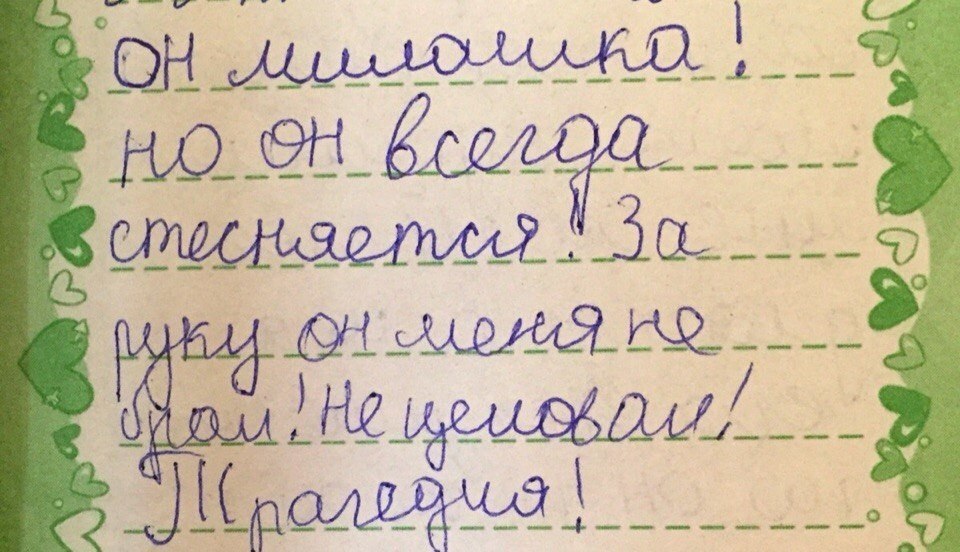 он милашка!
но он всегда
стесняется! За
руку он меня не
брал! Не целовал!
Трагедия!